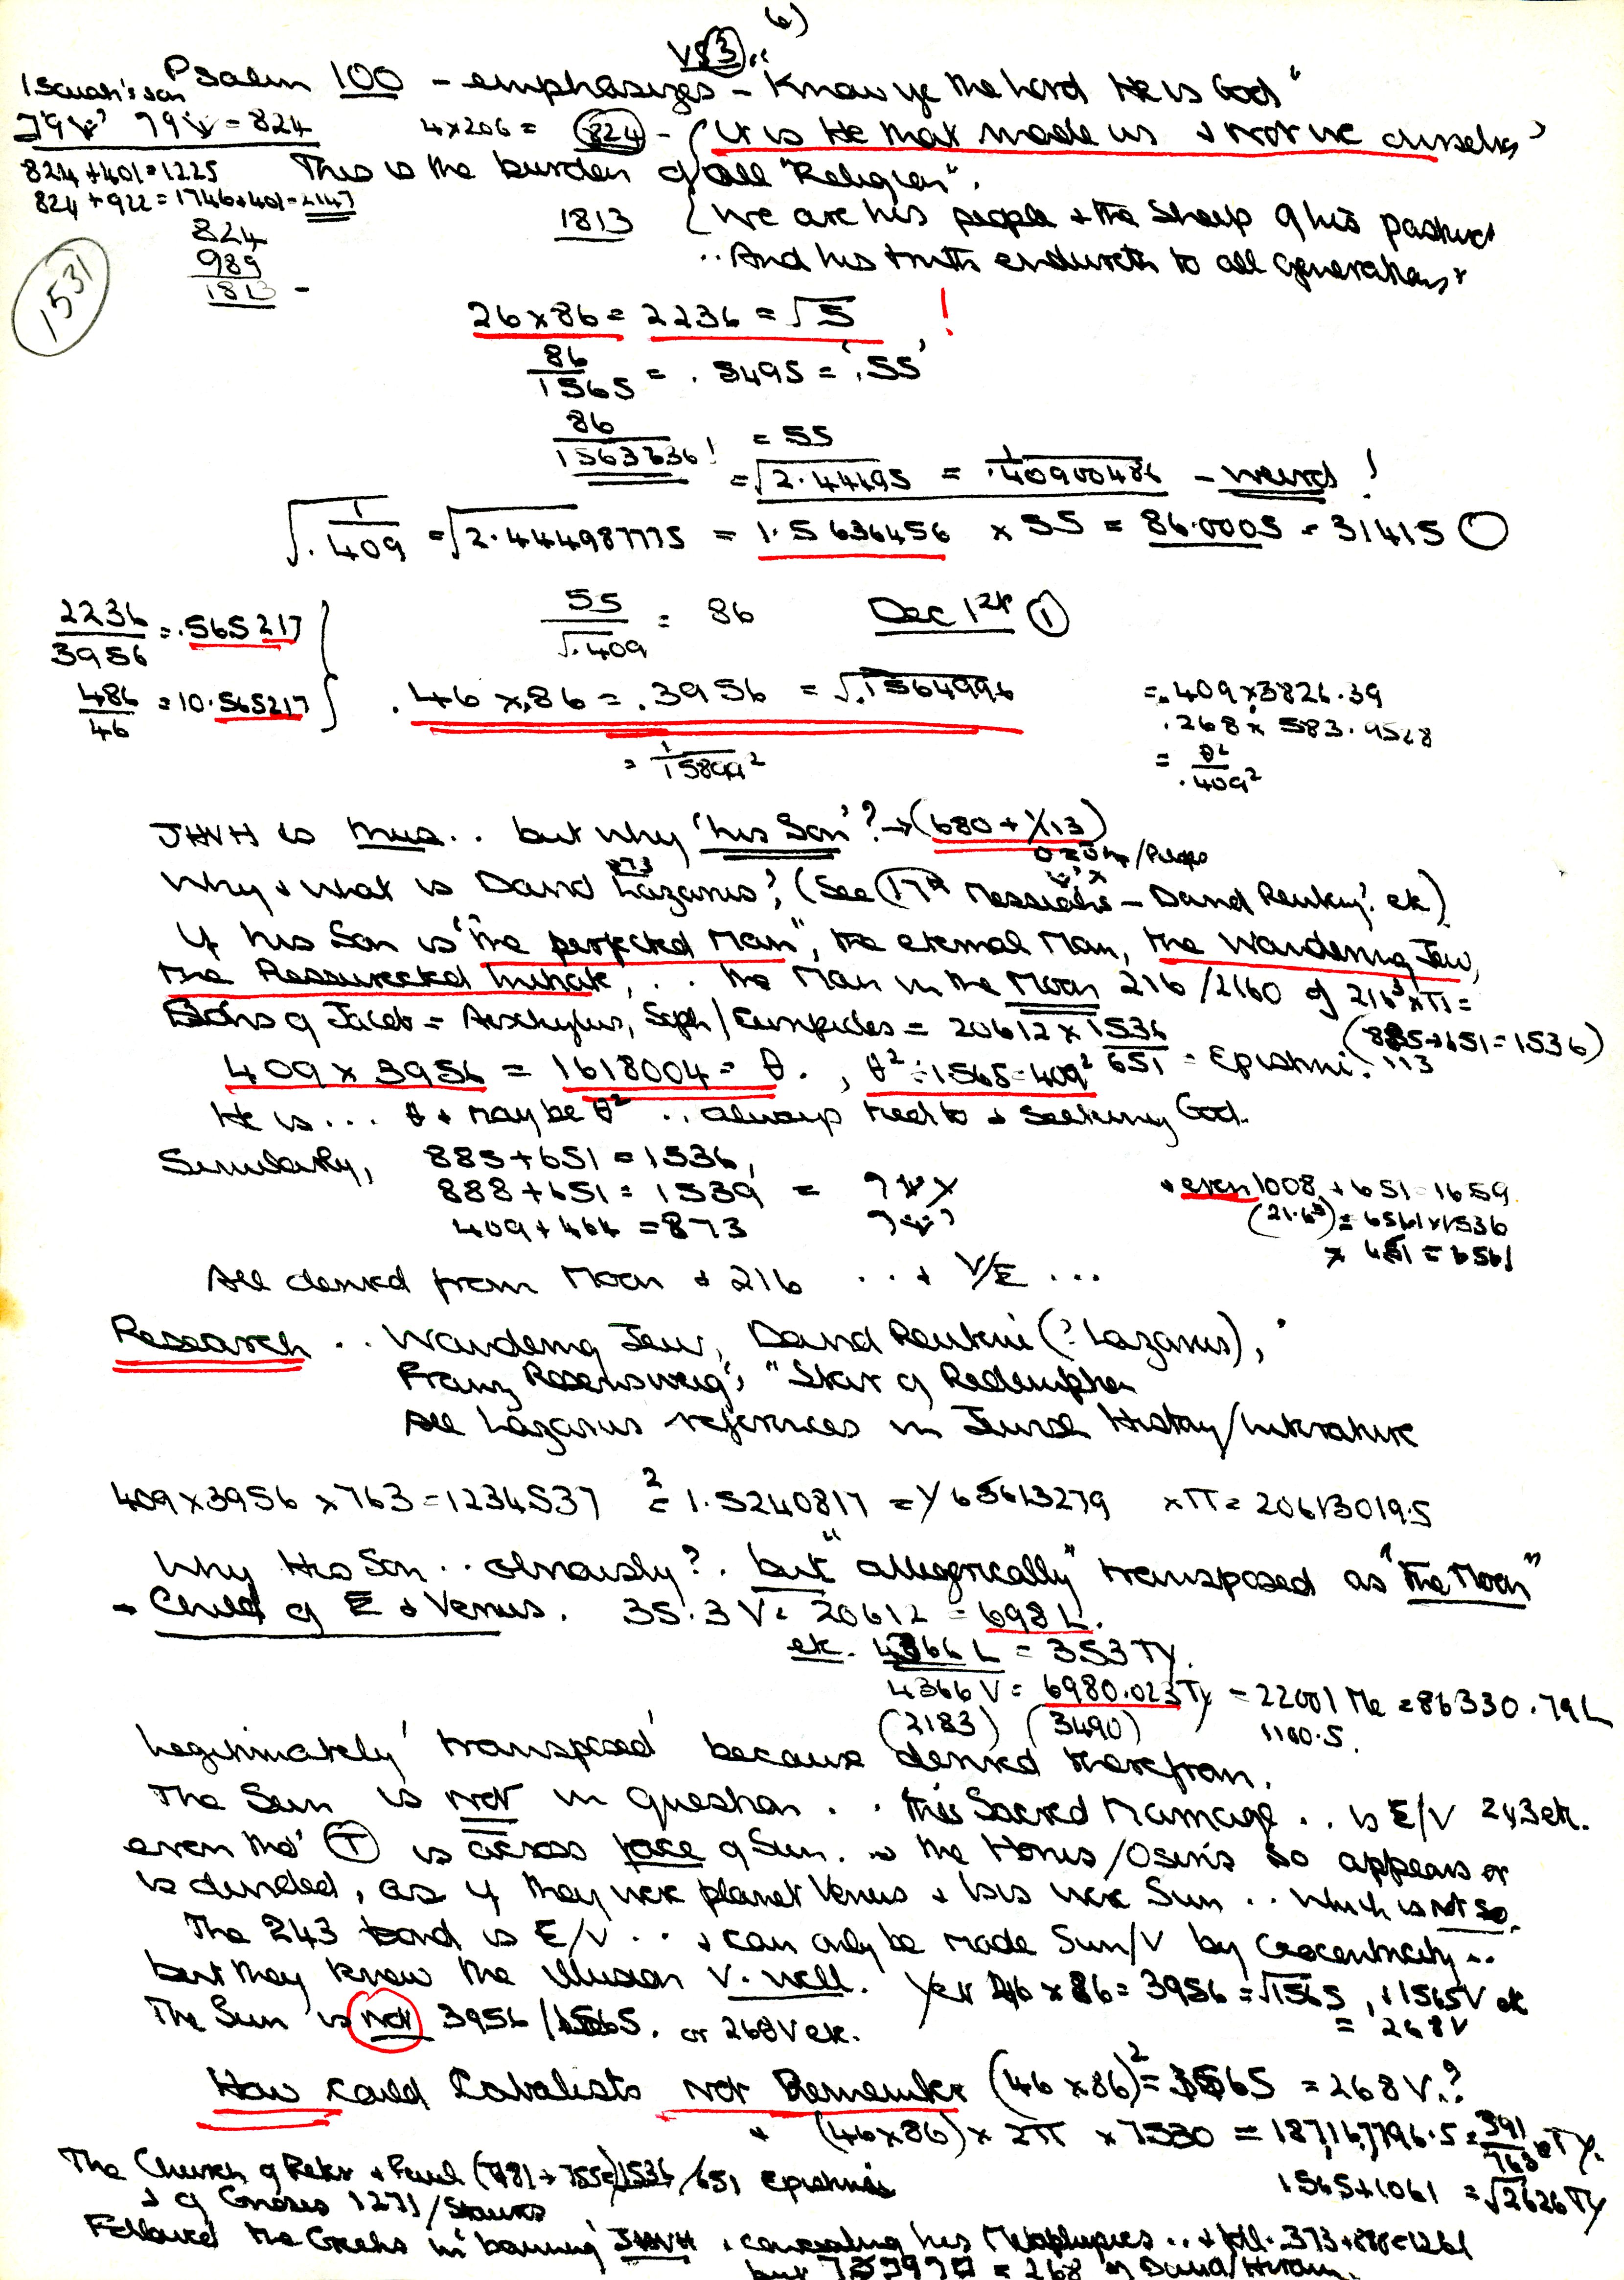 6)
VS 3..
Psalm 100 - emphasizes - "Know ye the Lord He is God"
Isaiah's son
= 824
4x206 = 824 - { It is He that made us + not we ourselves'
824+401=1225
This is the burden of all "Religion".
824+922=1746+401=2147
1813 { We are his people + the Sheep of his pasture
824
989
1813 -
..And his truth endureth to all generations.
1531
26x86 = 2236 = √5 !
86/1565 = .5495 = '.55'
86/1563636! = 55
= √2.44495 = 1/.40900486 - weird !
√1/.409 = √2.444987775 = 1.5636456 x 55 = 86.0005 = 31415 O
2236/3956 = .565217 }
55/√.409 = 86 Dec 12th ①
486/46 = 10.565217 }
.46 x .86 = .3956 = √.1564996
= .409 x 3826.39
.268 x 583.9528
= 1/15899²
= θ²/.409²
JHVH is thus.. but why 'his Son'? → (680 + 113)
Why + what is David Lazarus? (See 17th Messiahs - David Reubeni? etc)
If his Son is "the perfected Man", the eternal Man, the Wandering Jew,
the Ressurected Initiate, .. the Man in the Moon 216/2160 of 216³xπ =
Sons of Jacob = Aeschylus, Soph/Euripides = 20612 x 1536/651 = Epistemi. (885+651=1536)
113
409 x 3956 = 1618004 = θ. , θ² ÷ 1565 = 409²
He is... θ + maybe θ² .. always tied to + seeking God.
Similarly, 885+651 = 1536,
888+651 = 1539 =
409+464 = 873
+ even 1008 + 651 = 1659
(21.6³) = 6561x1536
x 651 = 6561
All derived from Moon + 216 ..+ V/E ...
Research .. Wandering Jew, David Reubeni (? Lazarus),
Franz Rosensweig's "Star of Redemption
All Lazarus references in Jewish History/Literature
409x3956 x763 = 1234537 ² = 1.5240817 = 1/65613279 xπ = 20613019.5
Why His Son .. obviously? . but "allegorically" transposed as "The Moon"
- Child of E + Venus. 35.3 V = 20612 = 698 L.
etc. 4366 L = 353 TY.
4366 V = 6980.023 Ty = 22001 Me = 86330.79L
(2183) (3490) 1100.5.
Legitimately 'transposed' because derived therefrom.
The Sun is not in question .. this Sacred Marriage .. is E/V 243 etc.
even tho' Ⓣ is across face of Sun. + the Horus/Osiris so appears or
is divided, as if they were planet Venus + Isis were Sun .. which is not so.
The 243 bond is E/V .. + can only be made Sun/V by Geocentricity ..
but they knew the illusion V. well. Yet 46 x 86 = 3956 = √1565, + 1565V etc
= 268V
The Sun is not 3956/1565. or 268V etc.
How could Cabalists not Remember (46 x 86)² = 1565 = 268 V.?
+ (46x86) x 2π x 7530 = 187,167,796.5 = 391/763 TY.
The Church of Peter + Paul (781+755) 1536/651 Epistemi
1565+1061 = √2626 TY
+ of Gnosis 1271/Stauros
Followed the Greeks in 'banning' JHVH + concealing his Metaphysics .. + 373+888=1261
but = 268 of David/Hiram.